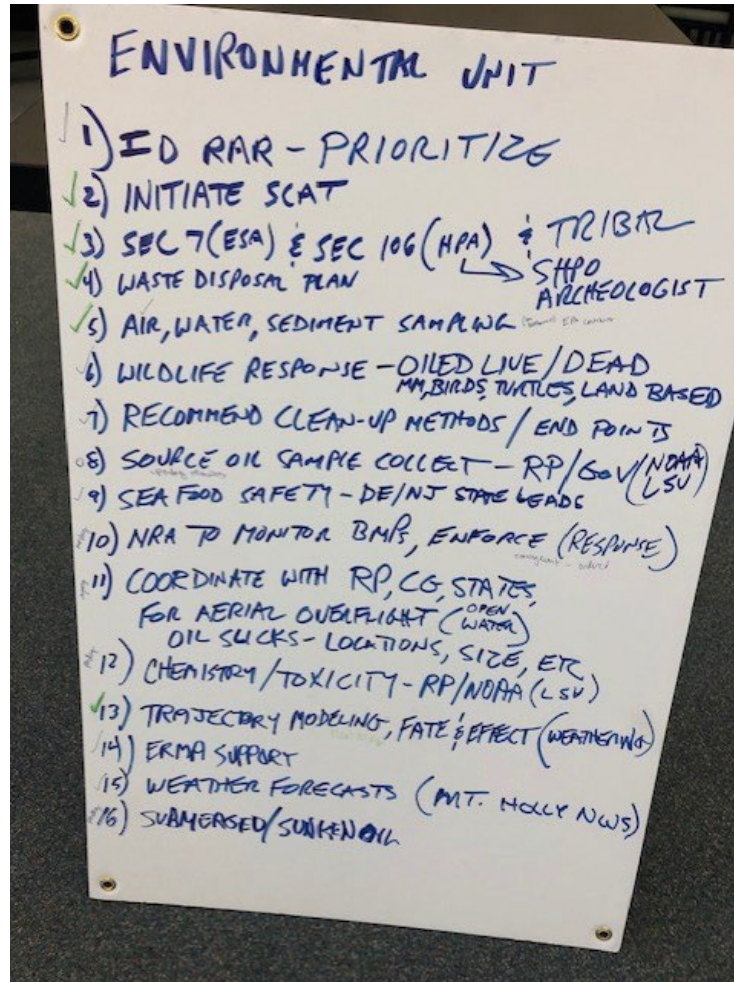 ENVIRONMENTAL UNIT
1) ID RAR - PRIORITIZE
2) INITIATE SCAT
3) SEC 7 (ESA) & SEC 106 (HPA) & TRIBAL
SHPO
ARCHEOLOGIST
4) WASTE DISPOSAL PLAN
5) AIR, WATER, SEDIMENT SAMPLING
6) WILDLIFE RESPONSE - OILED LIVE/DEAD
MM, BIRDS, TURTLES, LAND BASED
7) RECOMMEND CLEAN-UP METHODS / END POINTS
8) SOURCE OIL SAMPLE COLLECT - RP/GOV (NOAA
LSU)
9) SEAFOOD SAFETY - DE/NJ STATE LEADS
10) NRA TO MONITOR BMPS, ENFORCE (RESPONSE)
11) COORDINATE WITH RP, CG, STATES,
FOR AERIAL OVERFLIGHT (OPEN
WATER)
OIL SLICKS - LOCATIONS, SIZE, ETC
12) CHEMISTRY/TOXICITY - RP/NOAA (LSU)
13) TRAJECTORY MODELING, FATE & EFFECT (WEATHERING)
14) ERMA SUPPORT
15) WEATHER FORECASTS (MT. HOLLY NWS)
16) SUBMERGED/SUNKEN OIL